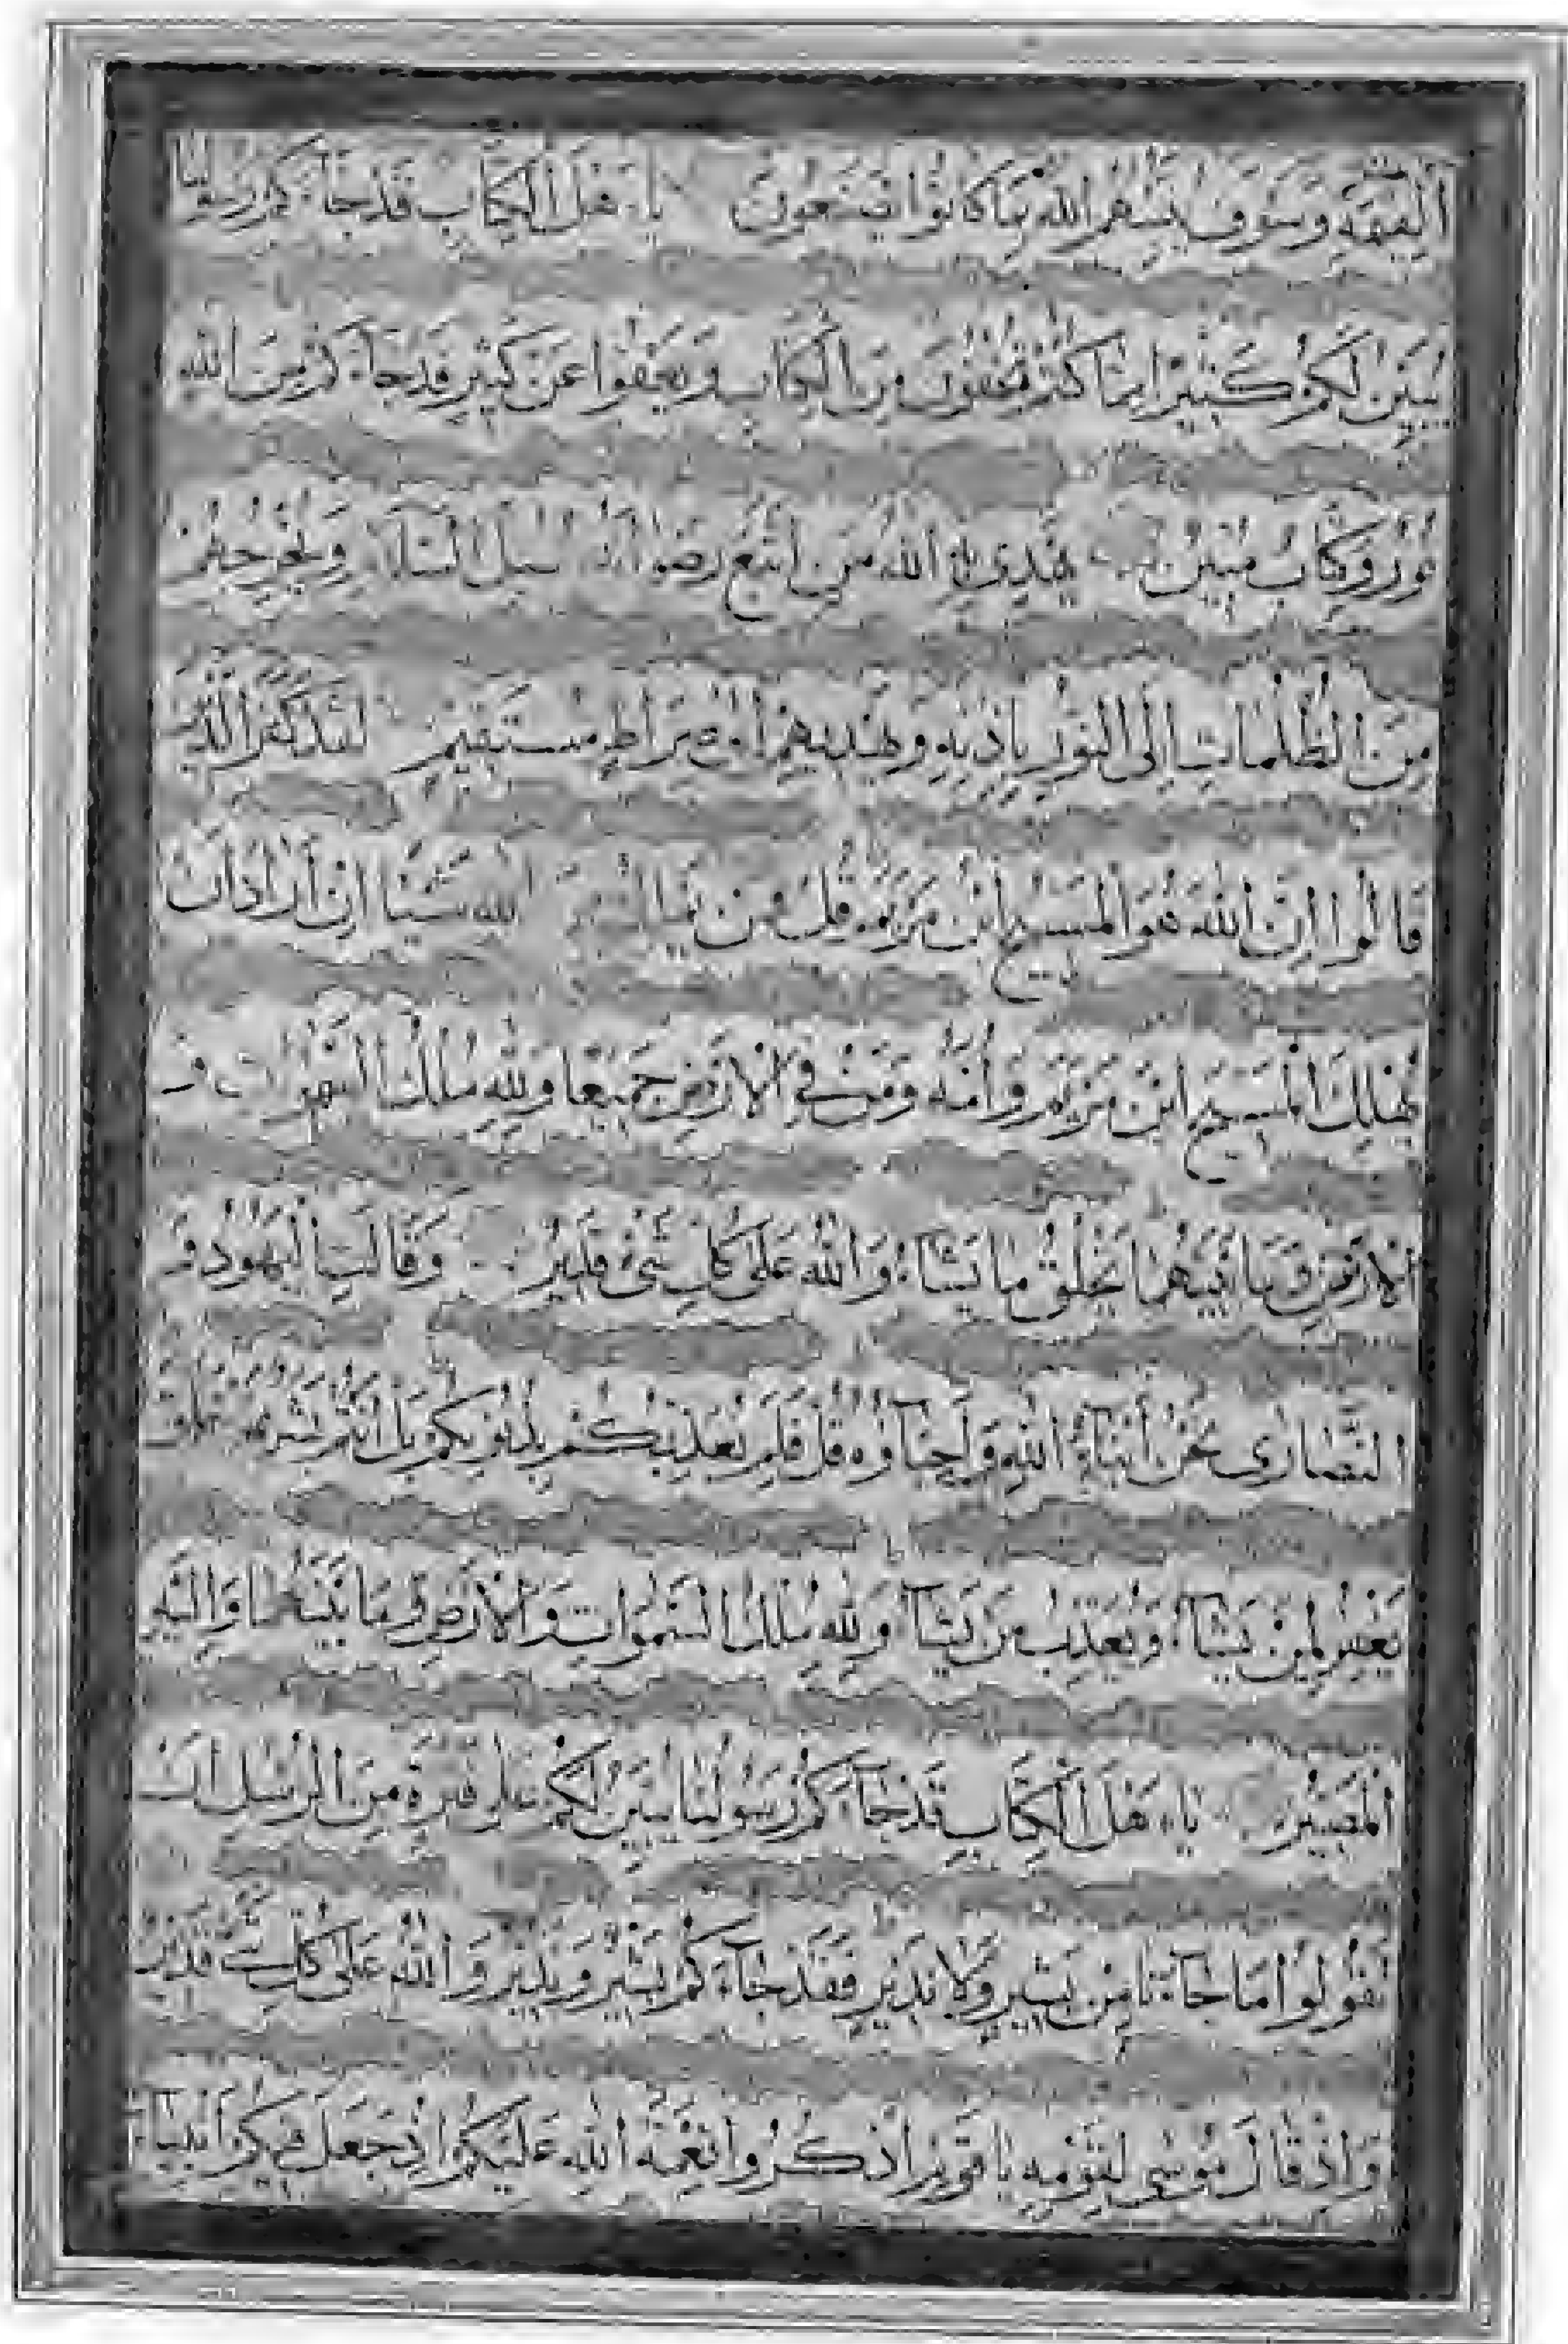 الْقِيَمَةِ وَسَوْفَ يُنَبِّئُهُمُ اللَّهُ بِمَا كَانُوا يَصْنَعُونَ يَا ءَهْلَ الْكِتَابِ قَدْ جَاءَكُمْ رَسُولُنَا
يُبَيِّنُ لَكُمْ كَثِيرًا مِمَّا كُنْتُمْ تُخْفُونَ مِنَ الْكِتَابِ وَيَعْفُوا عَنْ كَثِيرٍ قَدْ جَاءَكُمْ مِنَ اللَّهِ
نُورٌ وَكِتَابٌ مُبِينٌ يَهْدِي بِهِ اللَّهُ مَنِ اتَّبَعَ رِضْوَانَهُ سُبُلَ السَّلَامِ وَيُخْرِجُهُمْ
مِنَ الظُّلُمَاتِ إِلَى النُّورِ بِإِذْنِهِ وَيَهْدِيهِمْ إِلَى صِرَاطٍ مُسْتَقِيمٍ لَقَدْ كَفَرَ الَّذِينَ
قَالُوا إِنَّ اللَّهَ هُوَ الْمَسِيحُ ابْنُ مَرْيَمَ قُلْ فَمَنْ يَمْلِكُ مِنَ اللَّهِ شَيْئًا إِنْ أَرَادَ أَنْ
يُهْلِكَ الْمَسِيحَ ابْنَ مَرْيَمَ وَأُمَّهُ وَمَنْ فِي الْأَرْضِ جَمِيعًا وَلِلَّهِ مُلْكُ السَّمَوَاتِ وَ
الْأَرْضِ وَمَا بَيْنَهُمَا يَخْلُقُ مَا يَشَاءُ وَاللَّهُ عَلَى كُلِّ شَيْءٍ قَدِيرٌ وَقَالَتِ الْيَهُودُ وَ
النَّصَارَى نَحْنُ أَبْنَاءُ اللَّهِ وَأَحِبَّاؤُهُ قُلْ فَلِمَ يُعَذِّبُكُمْ بِذُنُوبِكُمْ بَلْ أَنْتُمْ بَشَرٌ مِمَّنْ خَلَقَ
يَغْفِرُ لِمَنْ يَشَاءُ وَيُعَذِّبُ مَنْ يَشَاءُ وَلِلَّهِ مُلْكُ السَّمَوَاتِ وَالْأَرْضِ وَمَا بَيْنَهُمَا وَإِلَيْهِ
الْمَصِيرُ يَا ءَهْلَ الْكِتَابِ قَدْ جَاءَكُمْ رَسُولُنَا يُبَيِّنُ لَكُمْ عَلَى فَتْرَةٍ مِنَ الرُّسُلِ أَنْ
تَقُولُوا مَا جَاءَنَا مِنْ بَشِيرٍ وَلَا نَذِيرٍ فَقَدْ جَاءَكُمْ بَشِيرٌ وَنَذِيرٌ وَاللَّهُ عَلَى كُلِّ شَيْءٍ قَدِيرٌ
وَإِذْ قَالَ مُوسَى لِقَوْمِهِ يَا قَوْمِ اذْكُرُوا نِعْمَةَ اللَّهِ عَلَيْكُمْ إِذْ جَعَلَ فِيكُمْ أَنْبِيَاءَ